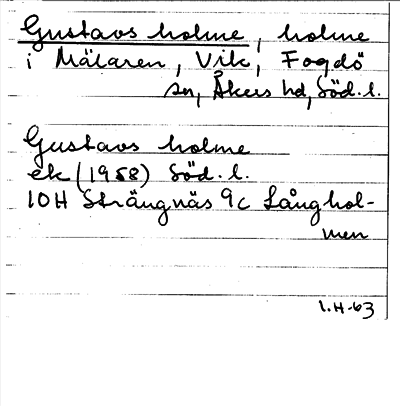 Gustavs holme, holme
i Mälaren, Vik, Fogdö
sn, Åkers hd, Söd. l.
Gustavs holme
ek (1958) Söd. l.
10H Strängnäs 9c Långhol-
men
1.H-63